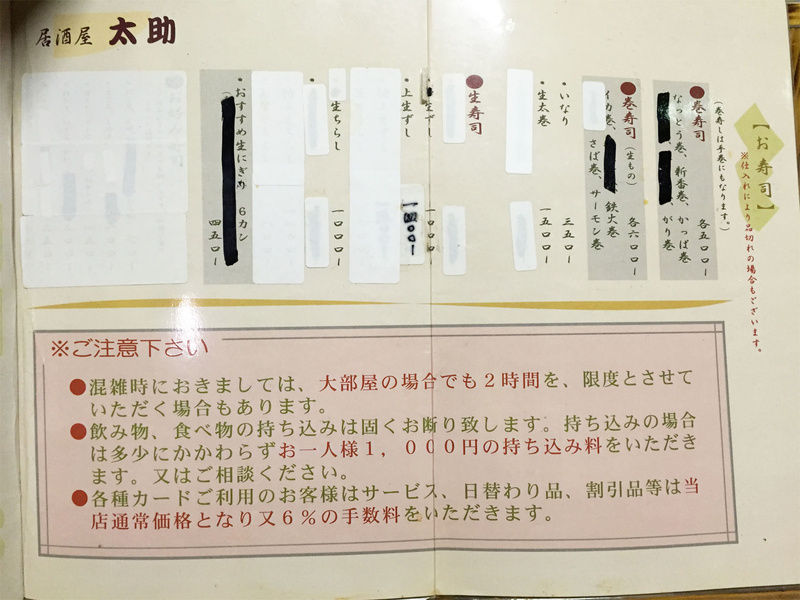 居酒屋 太助
【お寿司】
※仕入れにより品切れの場合もございます。
(巻寿しは手巻にもなります。)
●巻寿司 各五〇〇ー
なっとう巻、新香巻、かっぱ巻
がり巻
●巻寿司(生もの) 各六〇〇ー
イカ巻、 鉄火巻
さば巻、サーモン巻
・いなり 三五〇ー
・生太巻 一五〇〇ー
●生寿司
生ずし 一〇〇〇ー
・上生ずし 一四〇〇ー
・生ちらし 一〇〇〇ー
・おすすめ生にぎり 6カン
四五〇ー
※ご注意下さい
●混雑時におきましては、大部屋の場合でも2時間を、限度とさせて
いただく場合もあります。
●飲み物、食べ物の持ち込みは固くお断り致します。持ち込みの場合
は多少にかかわらずお一人様1，０００円の持ち込み料をいただき
ます。又はご相談ください。
●各種カードご利用のお客様はサービス、日替わり品、割引品等は当
店通常価格となり又6％の手数料をいただきます。